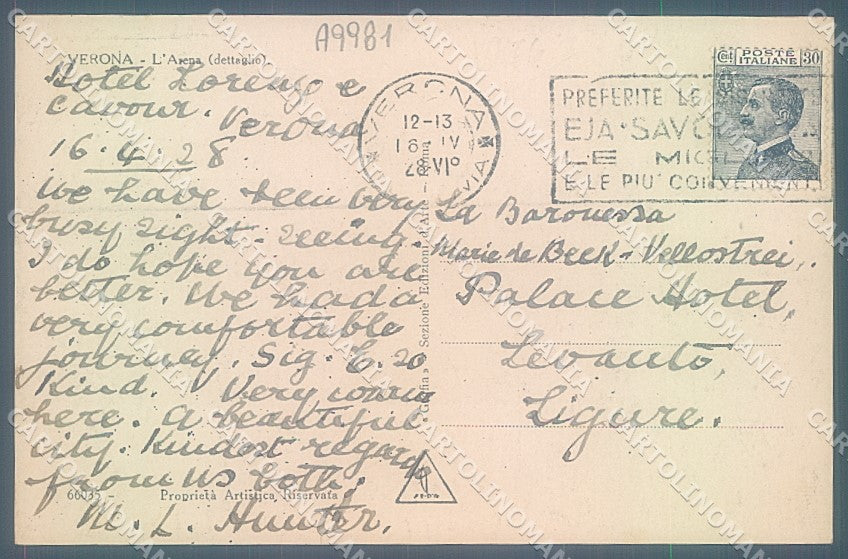 A9981
VERONA - L'Arena (dettaglio)
Hotel Lorenzo e
Cavour. Verona
16.4.28.
We have been very
busy sight-seeing.
I do hope you are
better. We had a
very comfortable
journey. Sig. so
kind. Very warm
here. A beautiful
city. Kindest regards
from us both.
M. L. Hunter.
66035 - Proprietà Artistica Riservata
Sezione Edizioni d'Arte - Roma
VERONA
12-13
16 IV
28 VI°
PREFERITE LE
EJA · SAVO
LE MIGL
E LE PIU' CONVENIENTI
Cent POSTE ITALIANE 30
La Baronessa
Marie de Beck-Vellostrei,
Palace Hotel,
Levanto,
Ligure.
CARTOLINOMANIA